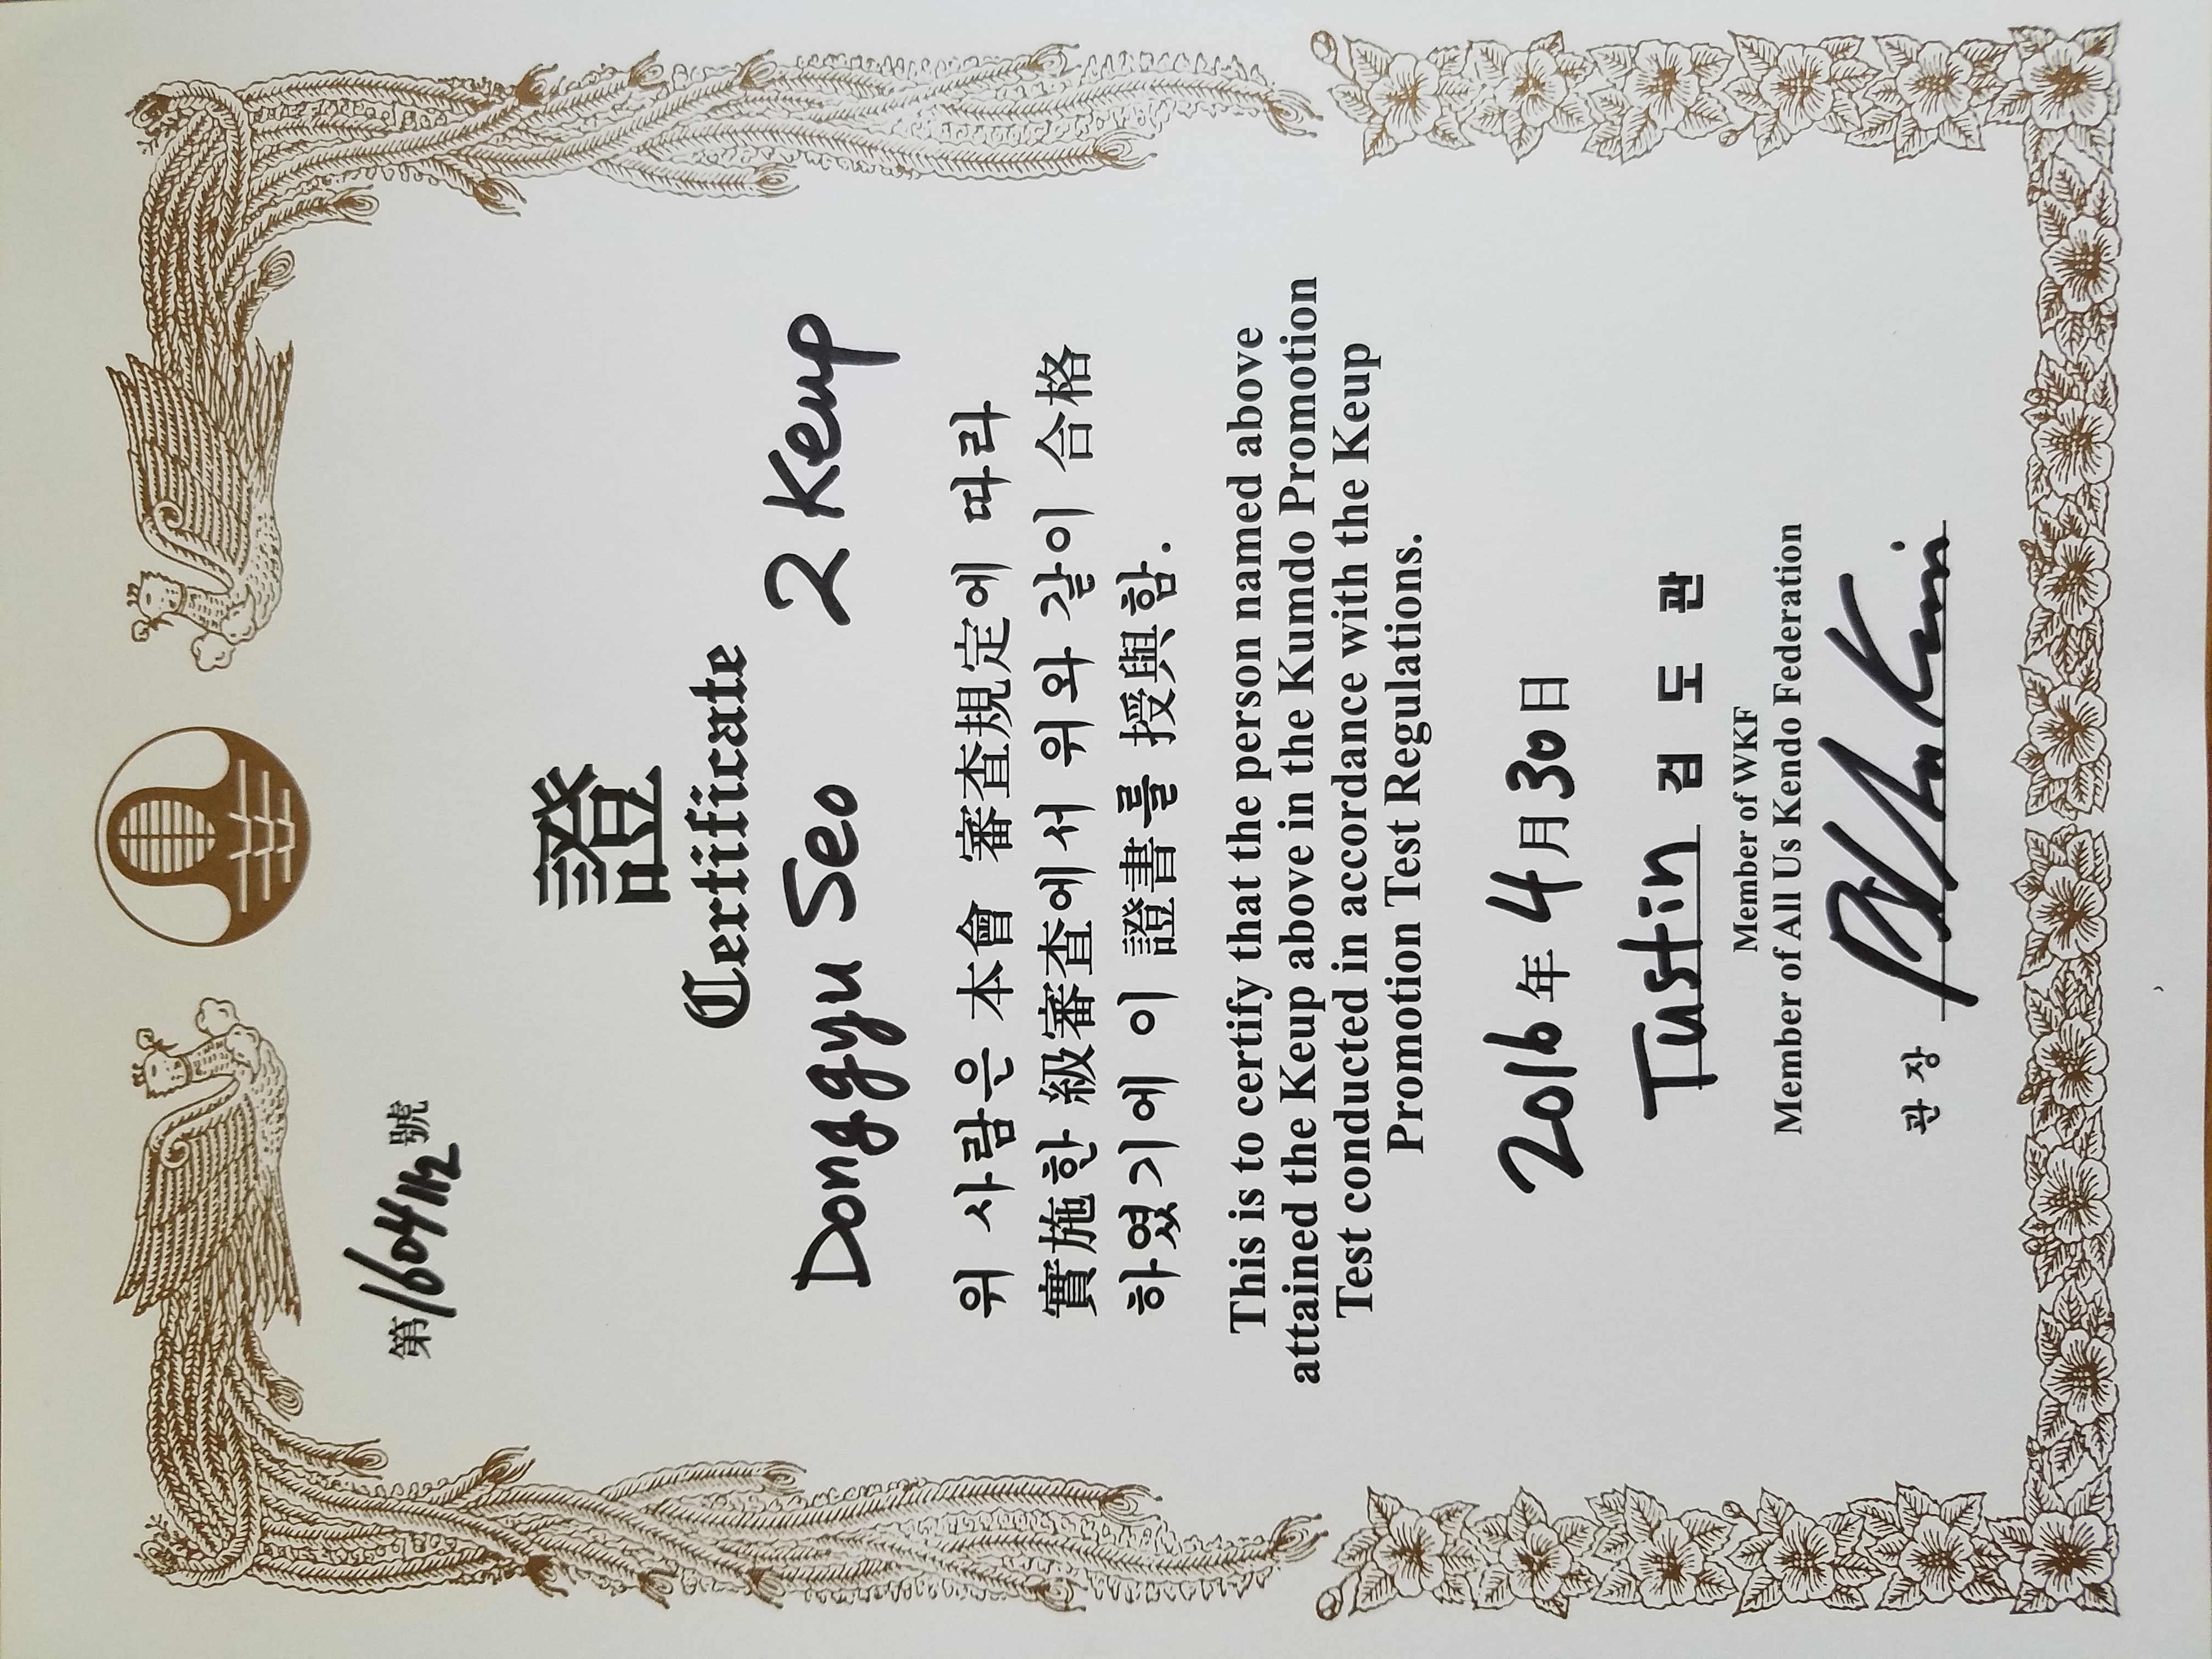 第1604112號
證
Certificate
Donggyu Seo 2 Keup
위 사람은 本會 審査規定에 따라
實施한 級審査에서 위와 같이 合格
하였기에 이 證書를 授與함.
This is to certify that the person named above
attained the Keup above in the Kumdo Promotion
Test conducted in accordance with the Keup
Promotion Test Regulations.
2016 年 4 月 30 日
Tustin 검 도 관
Member of WKF
Member of All Us Kendo Federation
관 장 Kim